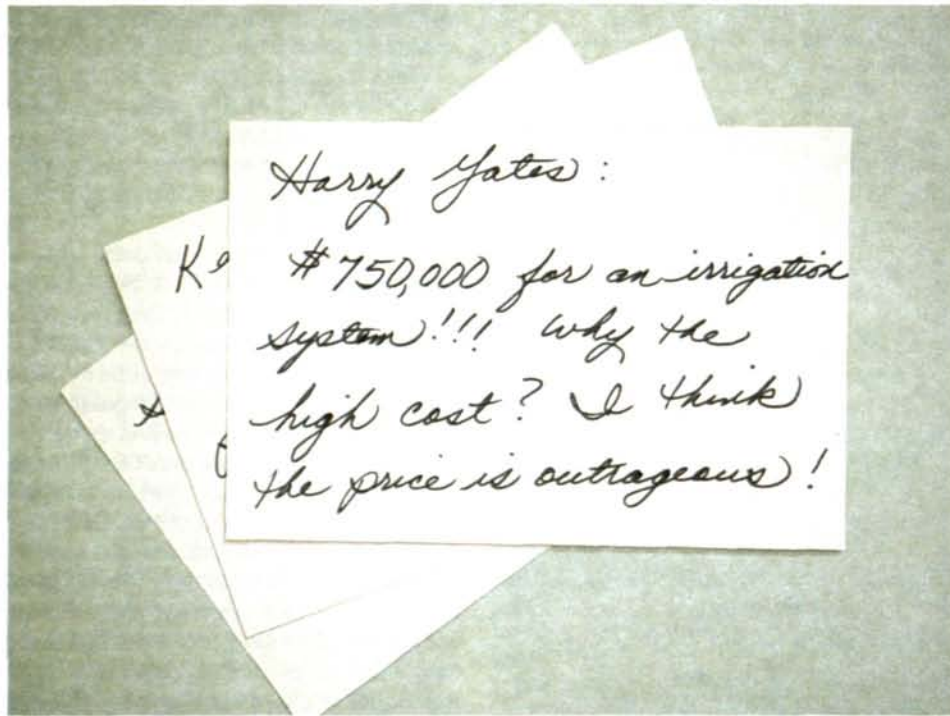 Harry Yates:
$750,000 for an irrigation
system!!! Why the
high cost? I think
the price is outrageous!
Ke